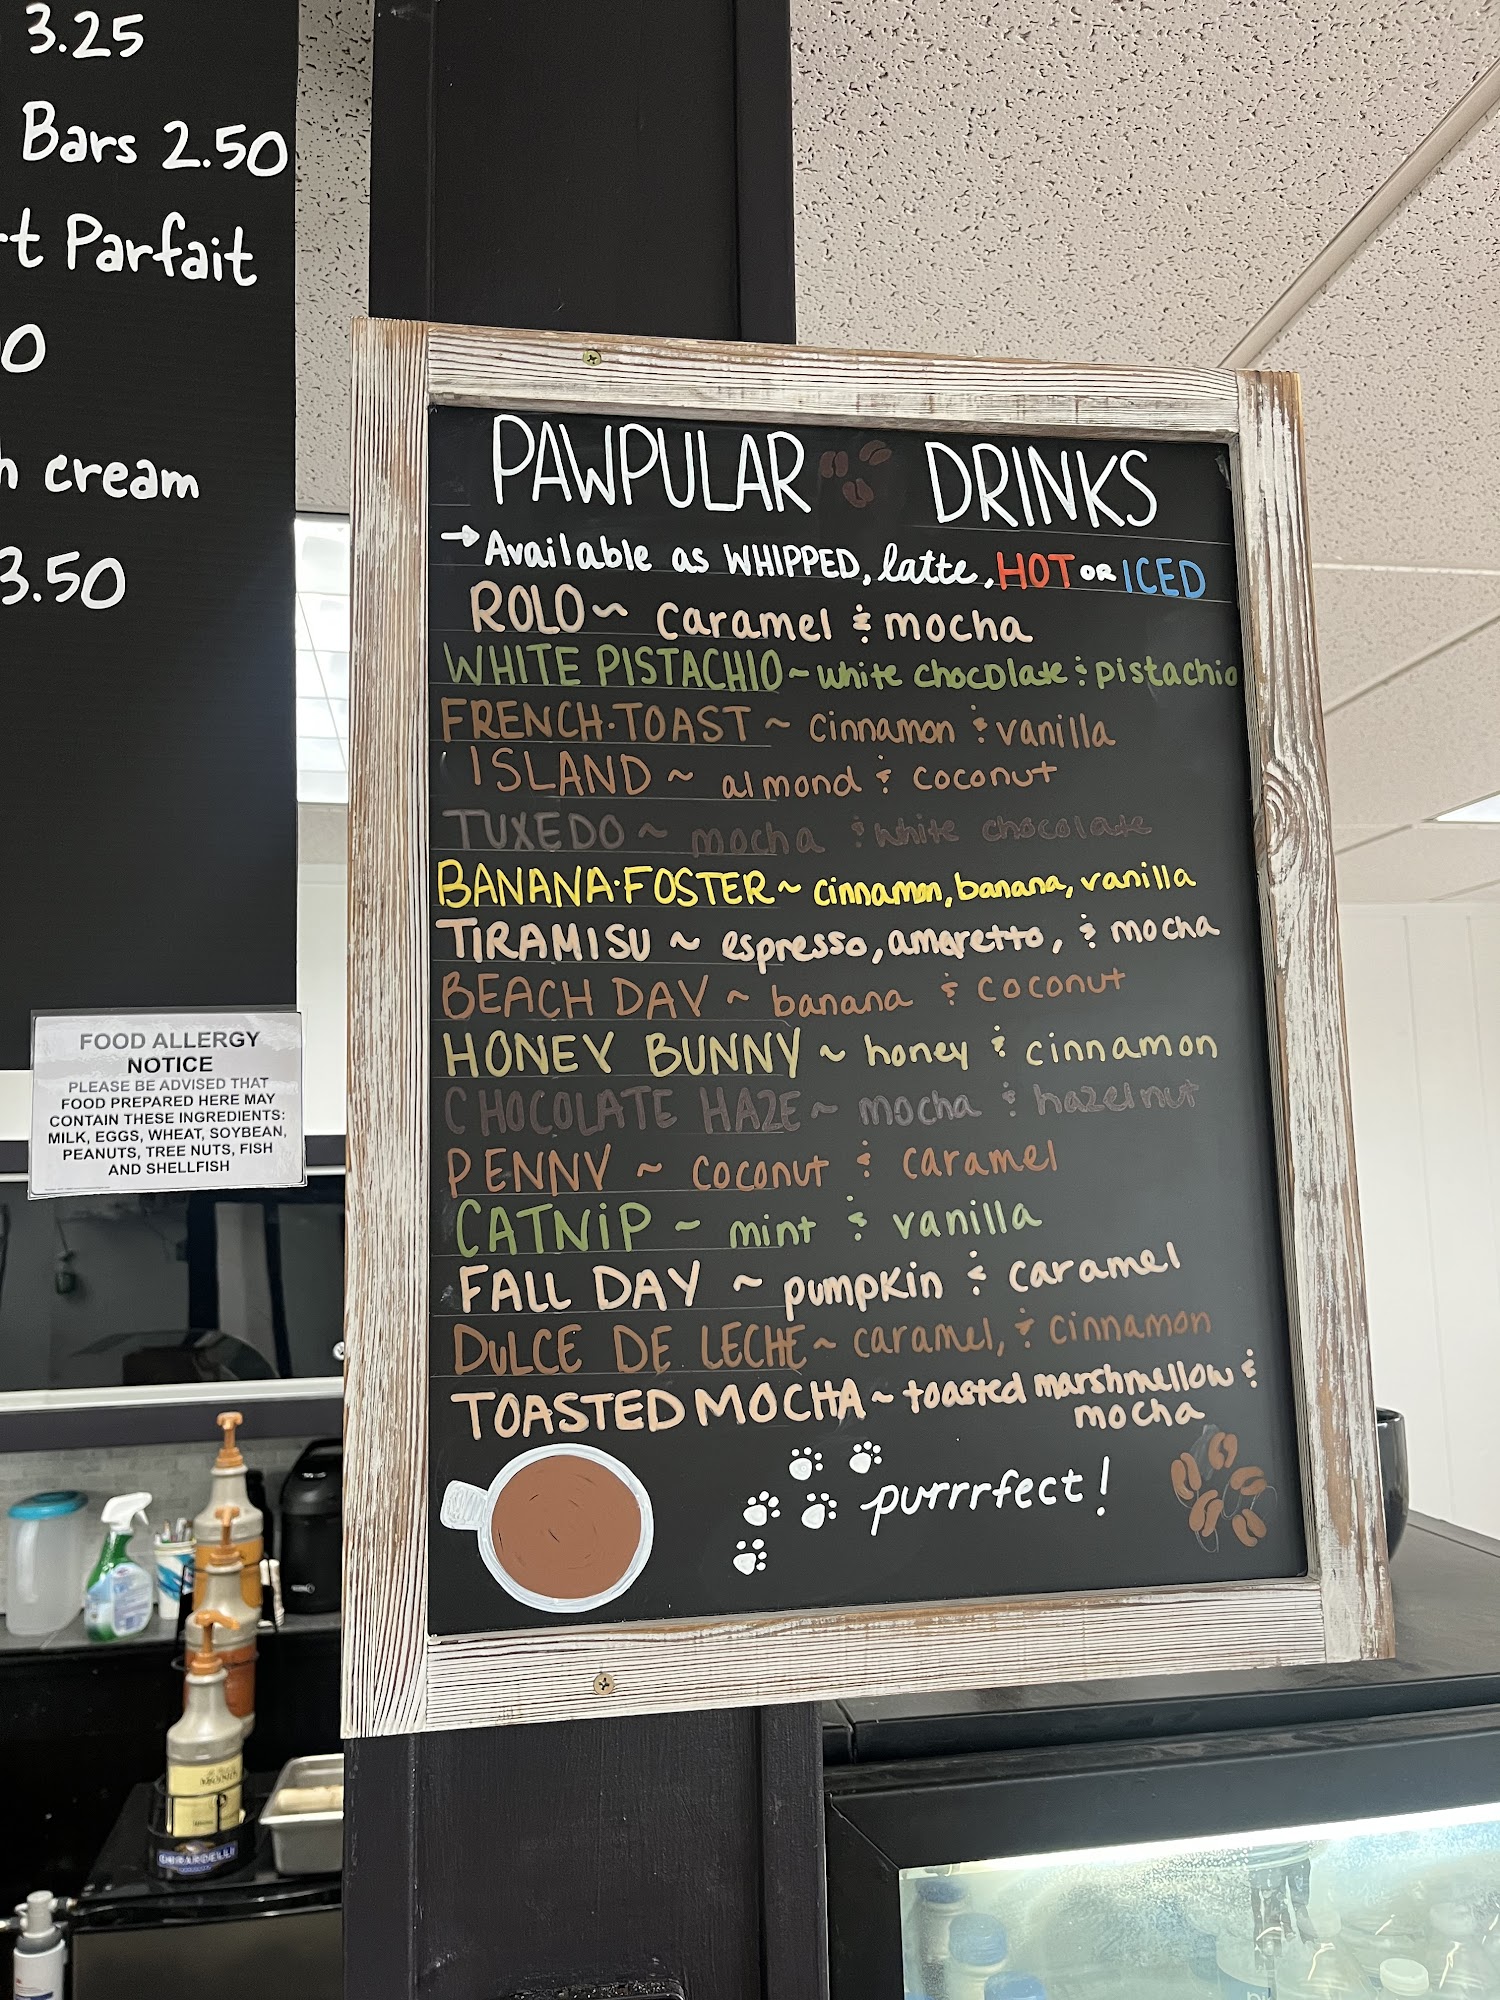 3.25
Bars 2.50
Parfait
cream
3.50
PAWPULAR DRINKS
→ Available as WHIPPED, latte, HOT OR ICED
ROLO ~ caramel & mocha
WHITE PISTACHIO ~ white chocolate & pistachio
FRENCH·TOAST ~ cinnamon & vanilla
ISLAND ~ almond & coconut
TUXEDO ~ mocha & white chocolate
BANANA·FOSTER ~ cinnamon, banana, vanilla
TIRAMISU ~ espresso, amaretto, & mocha
BEACH DAY ~ banana & coconut
HONEY BUNNY ~ honey & cinnamon
CHOCOLATE HAZE ~ mocha & hazelnut
PENNY ~ coconut & caramel
CATNIP ~ mint & vanilla
FALL DAY ~ pumpkin & caramel
DULCE DE LECHE ~ caramel, & cinnamon
TOASTED MOCHA ~ toasted marshmellow &
mocha
purrrfect!
FOOD ALLERGY
NOTICE
PLEASE BE ADVISED THAT
FOOD PREPARED HERE MAY
CONTAIN THESE INGREDIENTS:
MILK, EGGS, WHEAT, SOYBEAN,
PEANUTS, TREE NUTS, FISH
AND SHELLFISH
GHIRARDELLI